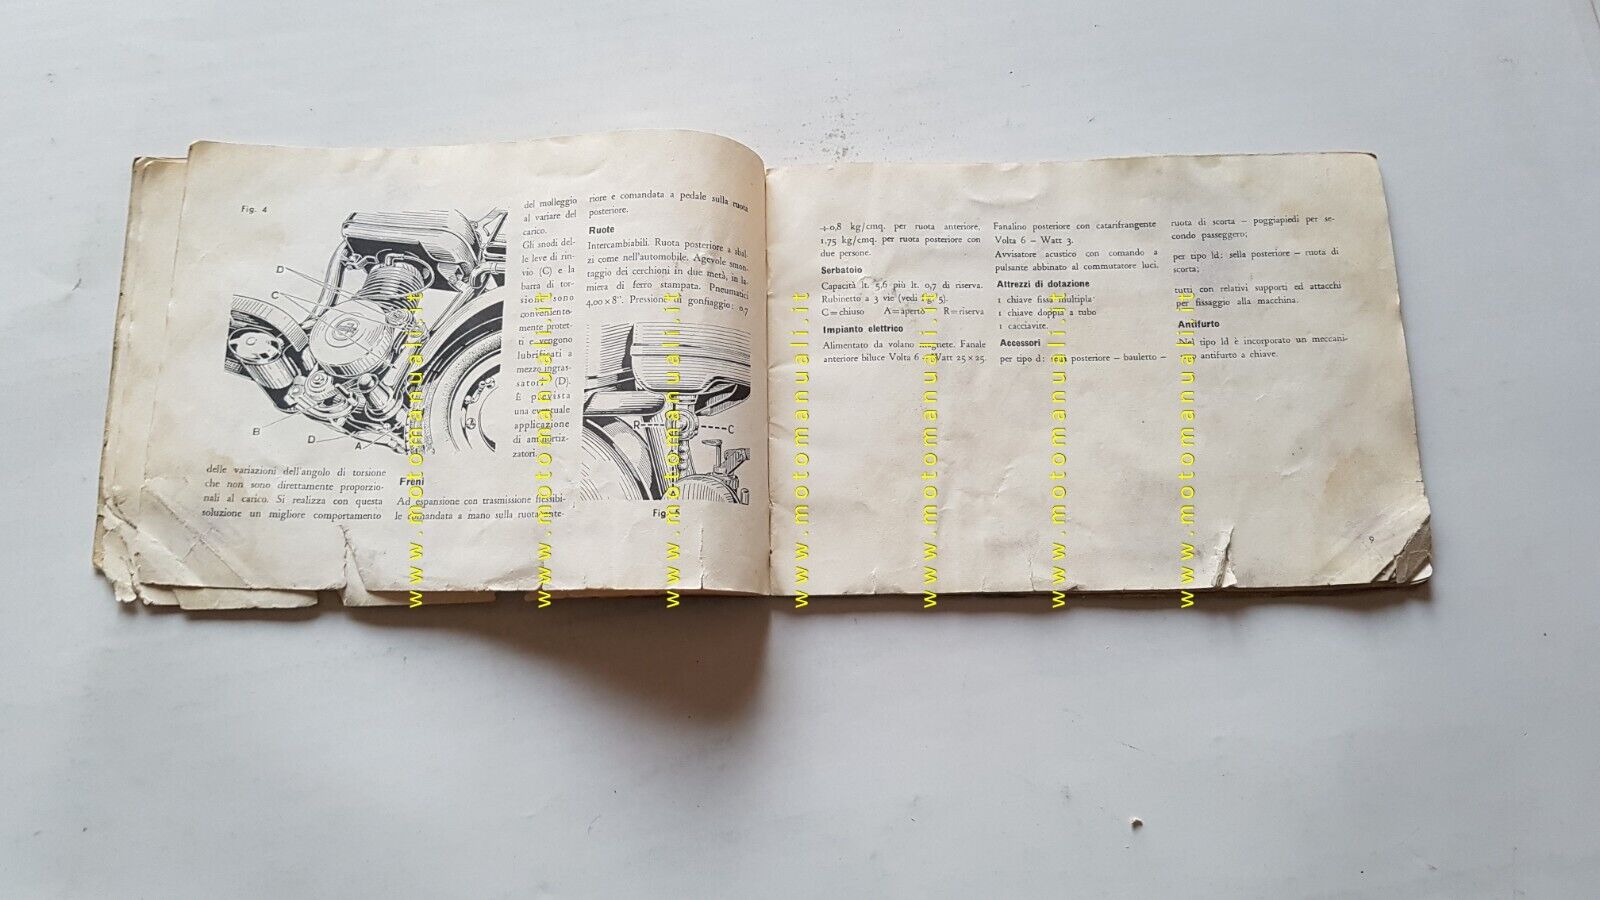 Fig. 4
D
C
B
D
A
delle variazioni dell'angolo di torsione
che non sono direttamente proporzio-
nali al carico. Si realizza con questa
soluzione un migliore comportamento
del molleggio
al variare del
carico.
Gli snodi del-
le leve di rin-
vio (C) e la
barra di tor-
sione sono
conveniente-
mente protet-
ti e vengono
lubrificati a
mezzo ingras-
satori (D).
È prevista
una eventuale
applicazione
di ammortiz-
zatori.
Freni
Ad espansione con trasmissione flessibi-
le comandata a mano sulla ruota ante-
riore e comandata a pedale sulla ruota
posteriore.
Ruote
Intercambiabili. Ruota posteriore a sbal-
zi come nell'automobile. Agevole smon-
taggio dei cerchioni in due metà, in la-
miera di ferro stampata. Pneumatici
4,00 x 8". Pressione di gonfiaggio: 0,7
R
C
A
Fig. 5
÷0,8 kg/cmq. per ruota anteriore,
1.75 kg/cmq. per ruota posteriore con
due persone.
Serbatoio
Capacità lt. 5,6 più lt. 0,7 di riserva.
Rubinetto a 3 vie (vedi fig. 5).
C=chiuso A=aperto R=riserva
Impianto elettrico
Alimentato da volano magnete. Fanale
anteriore biluce Volta 6 - Watt 25×25.
Fanalino posteriore con catarifrangente
Volta 6 - Watt 3.
Avvisatore acustico con comando a
pulsante abbinato al commutatore luci.
Attrezzi di dotazione
1 chiave fissa multipla
1 chiave doppia a tubo
1 cacciavite.
Accessori
per tipo d: sella posteriore - bauletto -
ruota di scorta - poggiapiedi per se-
condo passeggero;
per tipo ld: sella posteriore - ruota di
scorta;
tutti con relativi supporti ed attacchi
per fissaggio alla macchina.
Antifurto
Nel tipo ld è incorporato un meccani-
smo antifurto a chiave.
9
www.motomanuali.it
www.motomanuali.it
www.motomanuali.it
www.motomanuali.it
www.motomanuali.it
www.motomanuali.it
www.motomanuali.it